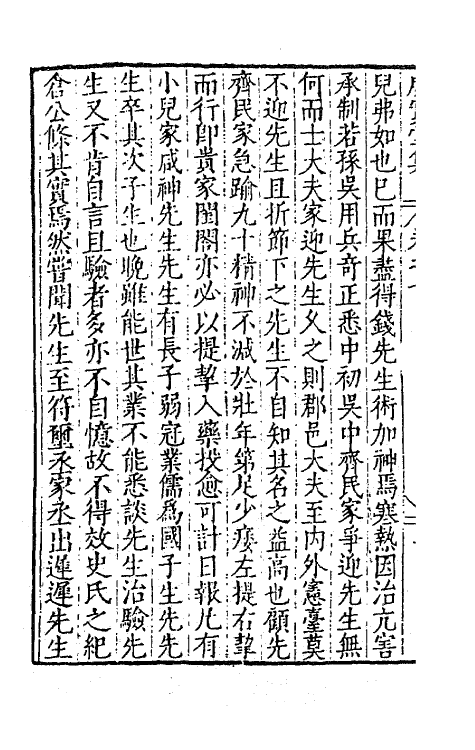 兒弗如也已而果盡得錢先生術加神焉寒熱因治亢害
承制若孫吳用兵奇正悉中初吳中齊民家爭迎先生無
何而士大夫家迎先生久之則郡邑大夫至內外憲臺莫
不迎先生且折節下之先生不自知其名之益高也顧先
齊民家急踰九十精神不減於壯年第足少痿左提右挈
而行卽貴家閨閤亦必以提挈入藥投愈可計日報凢有
小兒家咸神先生先生有長子弱冠業儒爲國子生先先
生卒其次子生也晚雖能世其業不能悉談先生治驗先
生又不肯自言且驗者多亦不自憶故不得效史氏之紀
倉公條其實焉然甞聞先生至符璽丞家丞出遲遲先生